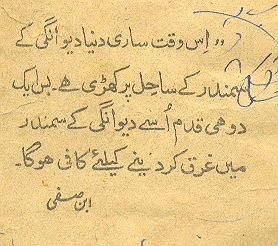 ”اِس وقت ساری دنیا دیوانگی کے
سمندر کے ساحل پر کھڑی ھے۔ بس ایک
دو ھی قدم اُسے دیوانگی کے سمندر
میں غرق کر دینے کیلئے کافی ھوگا۔
ابن صفی